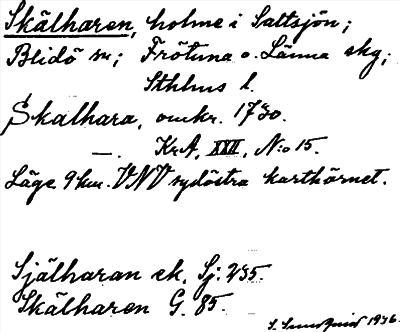 Skälharen, holme i Saltsjön;
Blidö sn; Frötuna o. Länna skg;
Sthlms l.
Skalhara, omkr. 1730.
—. KrA, XXII, N:o 15.
Läge 9 km. VNV sydöstra karthörnet.
Själharan ek. Sj: 235.
Skälharen G. 85.
1936.